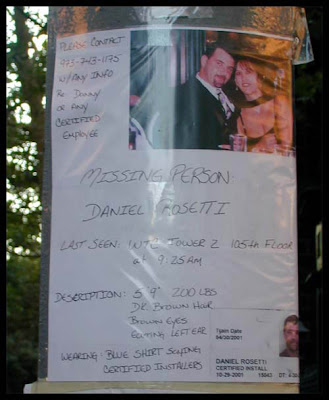 PLEASE CONTACT
973-743-1175
W/ANY INFO
RE: DANNY
OR ANY
CERTIFIED
EMPLOYEE
MISSING PERSON:
DANIEL ROSETTI
LAST SEEN: WTC TOWER 2 105th FLOOR
at 9:25AM
DESCRIPTION: 5'9" 200 LBS
DK BROWN HAIR
BROWN EYES
EARRING LEFT EAR
WEARING: BLUE SHIRT SAYING
CERTIFIED INSTALLERS
04/20/2001
DANIEL ROSETTI
CERTIFIED INSTALL
10-29-2001 15043